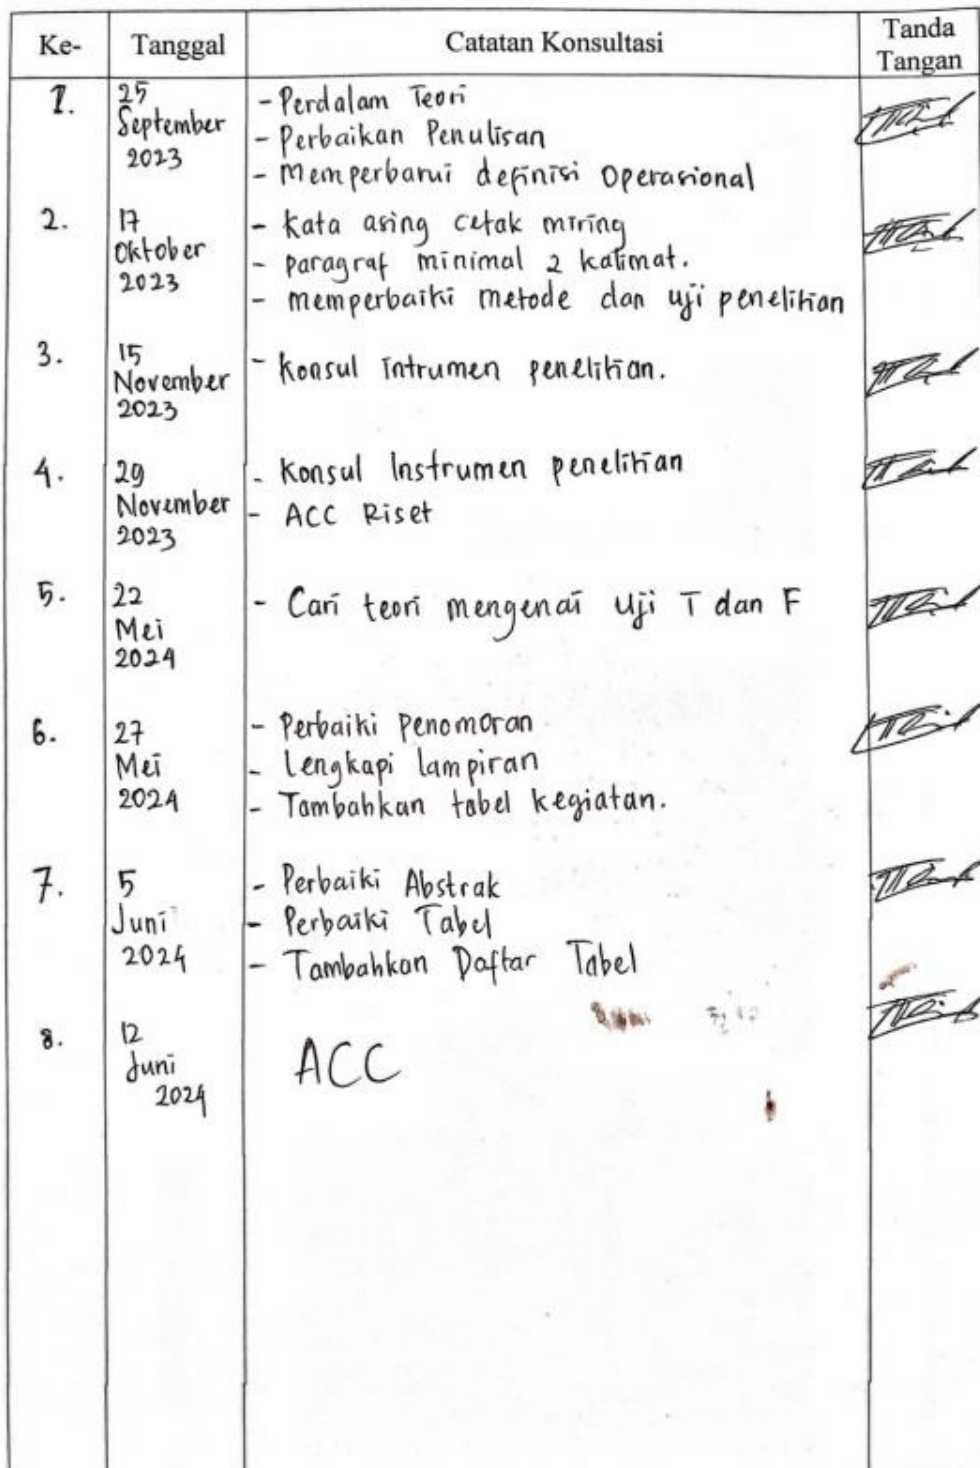 Ke- Tanggal Catatan Konsultasi Tanda Tangan
1. 25 September 2023
- Perdalam Teori
- Perbaikan Penulisan
- Memperbarui definisi Operasional
2. 17 Oktober 2023
- Kata asing cetak miring
- paragraf minimal 2 kalimat.
- memperbaiki metode dan uji penelitian
3. 15 November 2023
- Konsul intrumen penelitian.
4. 29 November 2023
- Konsul Instrumen penelitian
- ACC Riset
5. 22 Mei 2024
- Cari teori mengenai Uji T dan F
6. 27 Mei 2024
- Perbaiki Penomoran
- Lengkapi lampiran
- Tambahkan tabel kegiatan.
7. 5 Juni 2024
- Perbaiki Abstrak
- Perbaiki Tabel
- Tambahkan Daftar Tabel
8. 12 Juni 2024
ACC